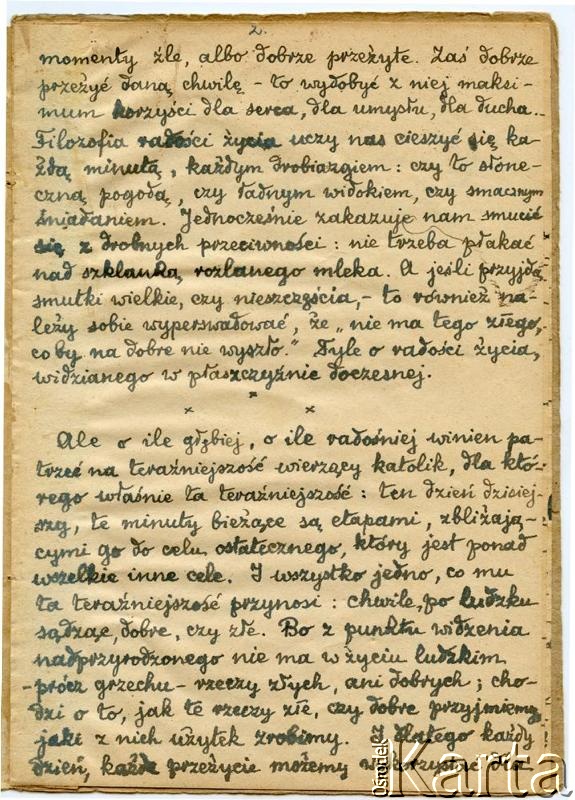 2.
momenty źle, albo dobrze przeżyte. Zaś dobrze
przeżyć daną chwilę - to wydobyć z niej maksi-
mum korzyści dla serca, dla umysłu, dla ducha..
Filozofia radości życia uczy nas cieszyć się ka-
żdą minutą, każdym drobiazgiem: czy to słone-
czną pogodą, czy ładnym widokiem, czy smacznym
śniadaniem. Jednocześnie zakazuje nam smucić
się z drobnych przeciwności: nie trzeba płakać
nad szklanką rozlanego mleka. A jeśli przyjdą
smutki wielkie, czy nieszczęścia, - to również na-
leży sobie wyperswadować, że „nie ma tego złego,
co by na dobre nie wyszło." Tyle o radości życia,
widzianego w płaszczyźnie doczesnej.
x x x
Ale o ile głębiej, o ile radośniej winien pa-
trzeć na teraźniejszość wierzący katolik, dla któ-
rego właśnie ta teraźniejszość: ten dzień dzisiej-
szy, te minuty bieżące są etapami, zbliżają-
cymi go do celu ostatecznego, który jest ponad
wszelkie inne cele. I wszystko jedno, co mu
ta teraźniejszość przynosi: chwile, po ludzku
sądząc, dobre, czy złe. Bo z punktu widzenia
nadprzyrodzonego nie ma w życiu ludzkim
- prócz grzechu - rzeczy złych, ani dobrych; cho-
dzi o to, jak te rzeczy złe, czy dobre przyjmiemy,
jaki z nich użytek zrobimy. I dlatego każdy
dzień, każde przeżycie możemy wykorzystać dla
ośrodek Karta